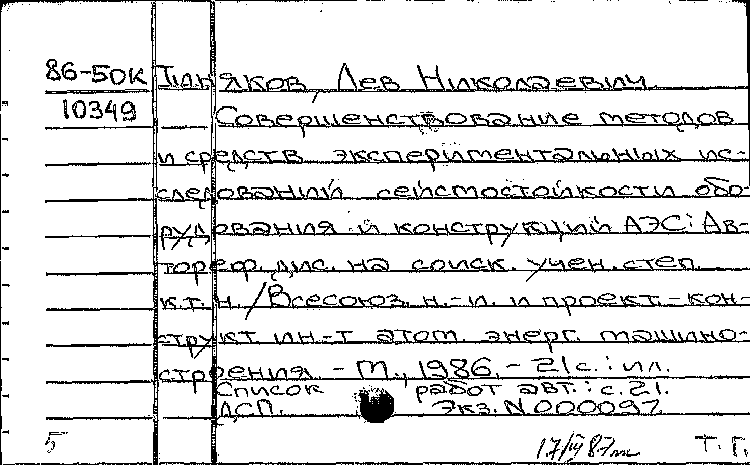 86-50к Тпняков, Лев Николаевич.
10349 Совершенствование методов
и средств экспериментальных ис-
следований сейсмостойкости обо-
рудования и конструкций АЭС: Ав-
тореф. дис. на соиск. учен. степ.
к.т.н. / Всесоюз. н.-и. и проект.-кон-
структ. ин-т атом. энерг. машино-
строения. - М., 1986. - 21с.: ил.
Список работ авт.: с.21.
ДСП. Экз. N 000097.
5 Т. Г.